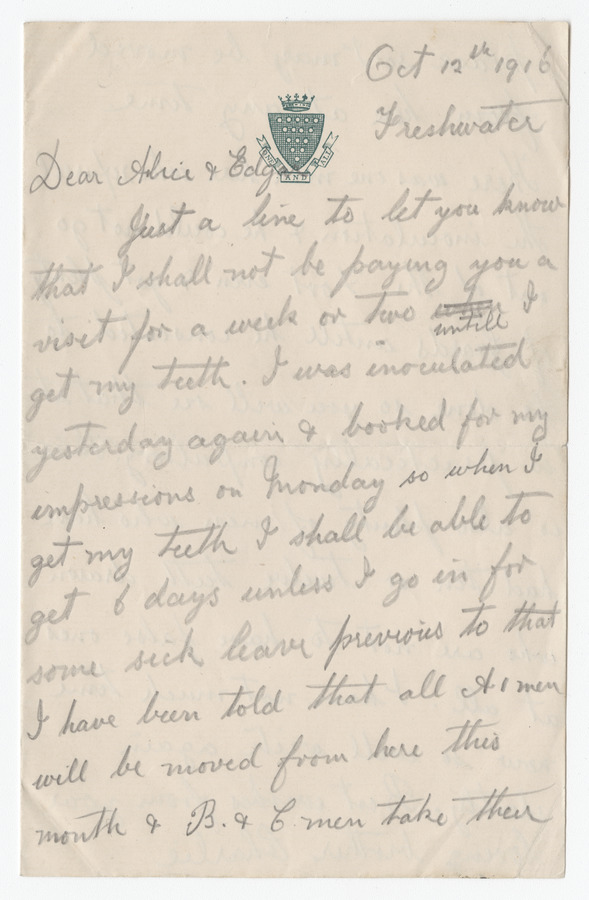 Oct 12th 1916
Freshwater
ONE AND ALL
Dear Alice & Edg
Just a line to let you know
that I shall not be paying you a
visit for a week or two untill I
get my teeth. I was inoculated
yesterday again & booked for my
impressions on Monday so when I
get my teeth I shall be able to
get 6 days unless I go in for
some sick leave previous to that
I have been told that all A1 men
will be moved from here this
month & B. & C. men take their